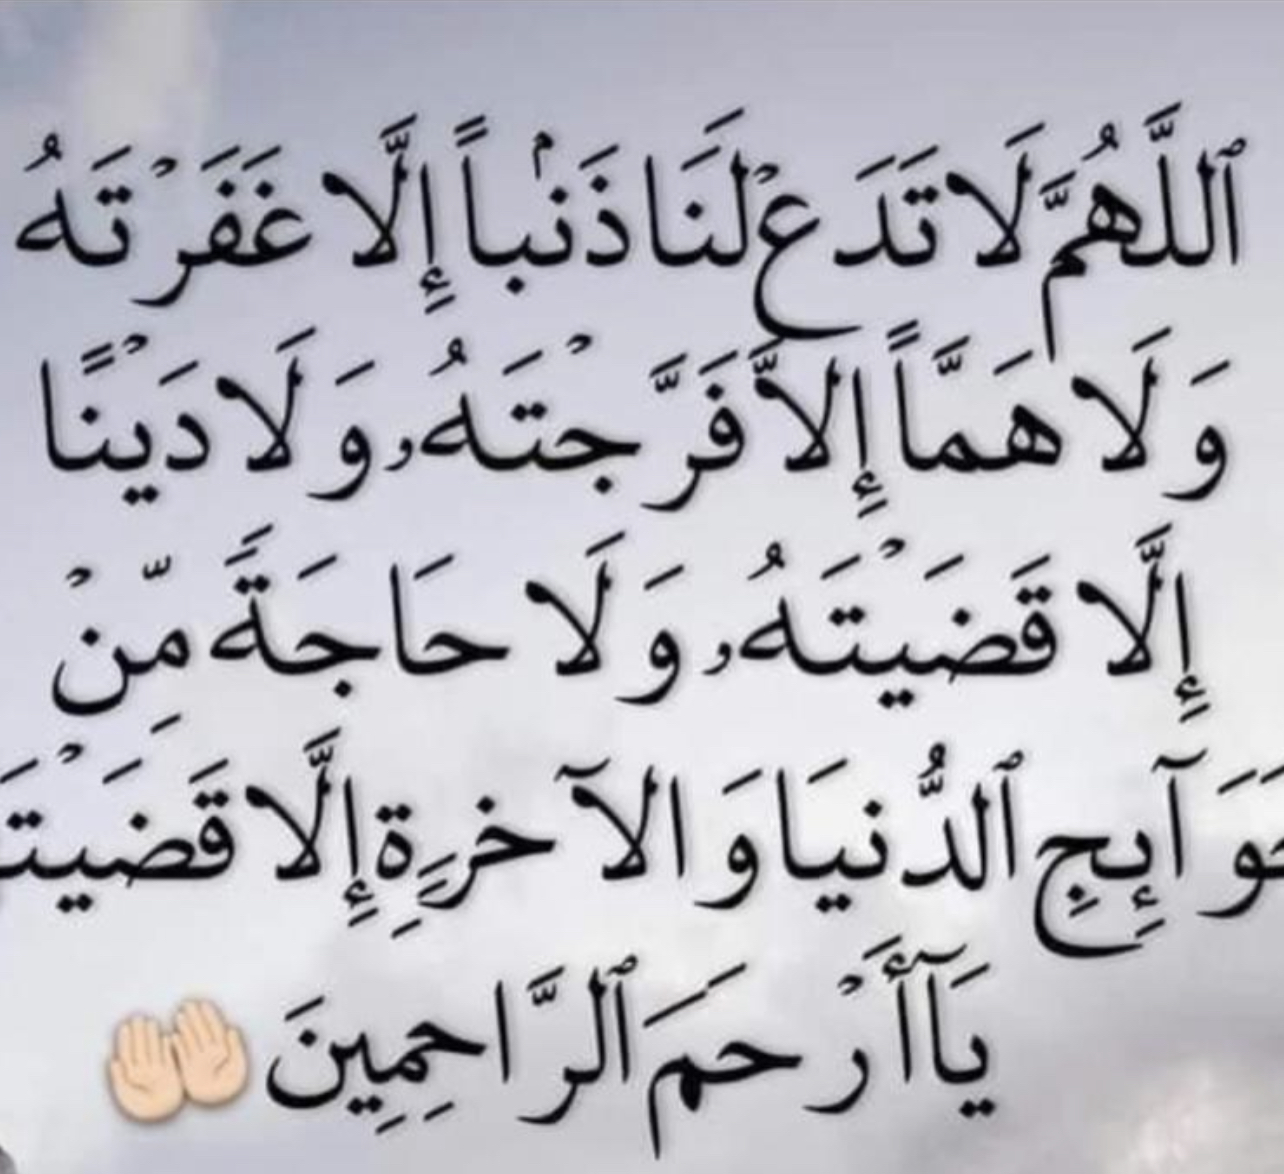 ٱللَّهُمَّ لَا تَدَعْ لَنَا ذَنۢباً إِلَّا غَفَرْتَهُ
وَلَا هَمَّاً إِلاَّ فَرَّجْتَهُۥ وَلَا دَيْنًا
إِلَّا قَضَيْتَهُۥ وَلَا حَاجَةً مِّنْ
حَوَآئِجِ ٱلدُّنيَا وَالآخرَةِ إِلَّا قَضَيْتَ
يَآأَرْحَمَ ٱلرَّاحِمِينَ 🤲🏼